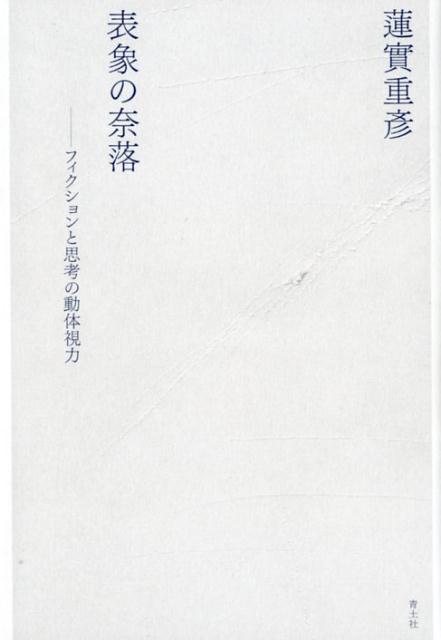 蓮實重彥
表象の奈落
――フィクションと思考の動体視力
青土社